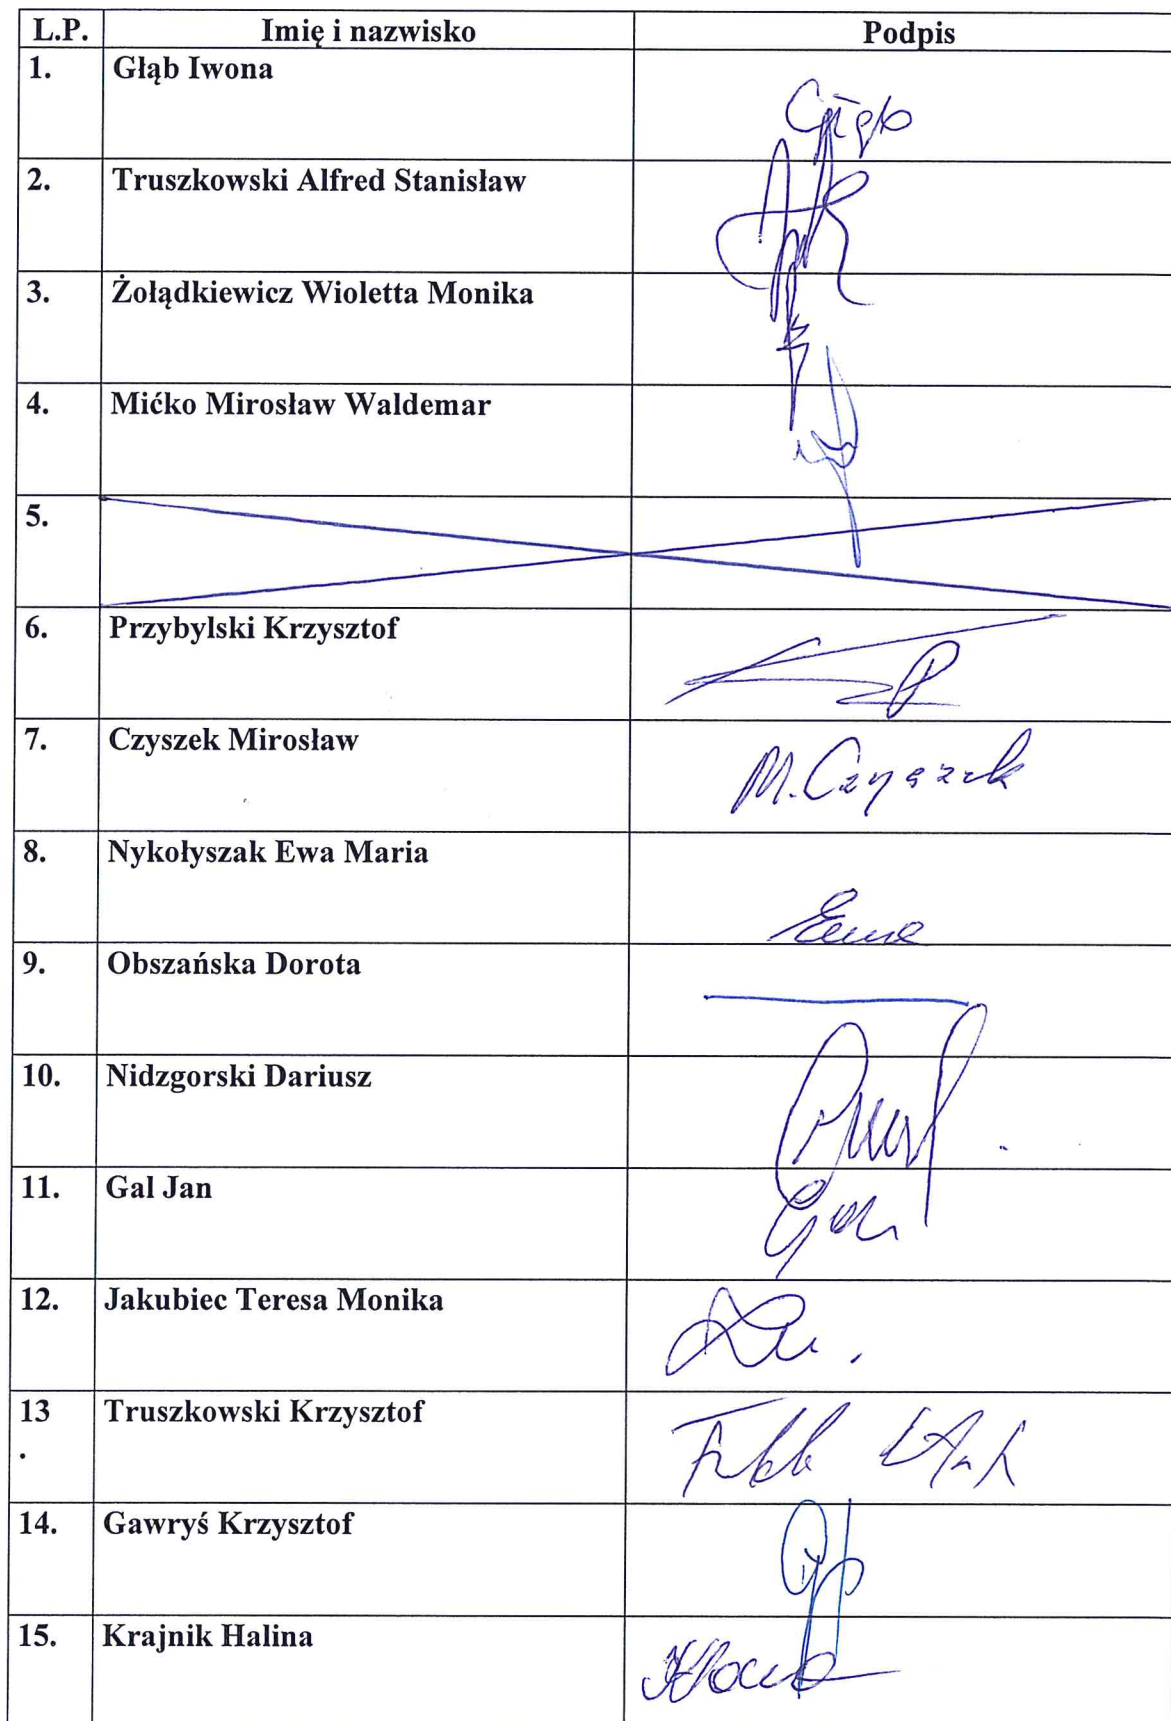 L.P. Imię i nazwisko Podpis
1. Głąb Iwona
Głąb
2. Truszkowski Alfred Stanisław
3. Żołądkiewicz Wioletta Monika
4. Mićko Mirosław Waldemar
5.
6. Przybylski Krzysztof
7. Czyszek Mirosław
M. Czyszek
8. Nykołyszak Ewa Maria
9. Obszańska Dorota
10. Nidzgorski Dariusz
11. Gal Jan
Gal
12. Jakubiec Teresa Monika
13
.
Truszkowski Krzysztof
14. Gawryś Krzysztof
15. Krajnik Halina